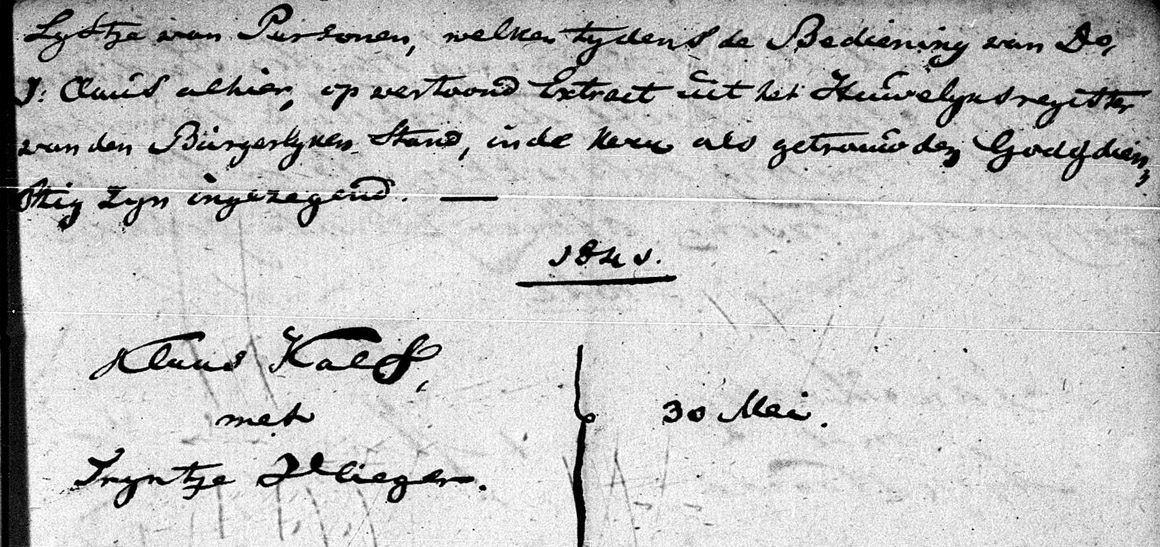 Lystje van Personen, welken tydens de Bediening van Do,
J: Claus alhier, op vertoond Extract uit het Huwelyksregister
van den Burgerlyken Stand, in de Kerk als getrouwden Godsdien,
stig zyn ingezegend. —
1841.
Klaas Kalf,
met
30 Mei.
Tryntje Vlieger.